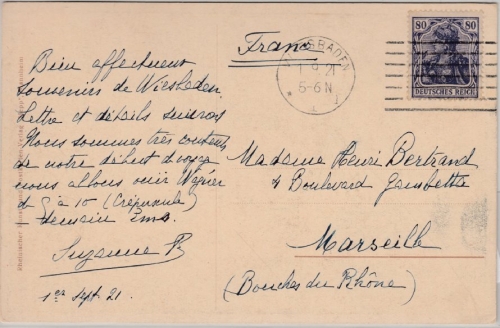 Bien affectueux
souvenirs de Wiesbaden.
Lettre et détails suivront
Nous sommes très contents
de notre début
nous allons voir Wagner
de 5 à 10 (Crépuscule)
demain Ems.
Suzanne B
1er Sept. 21.
France
WIESBADEN
1.9.21
5-6 N
80 80
DEUTSCHES REICH
Madame Henri Bertrand
4 Boulevard Gambetta
Marseille
(Bouches du Rhône)